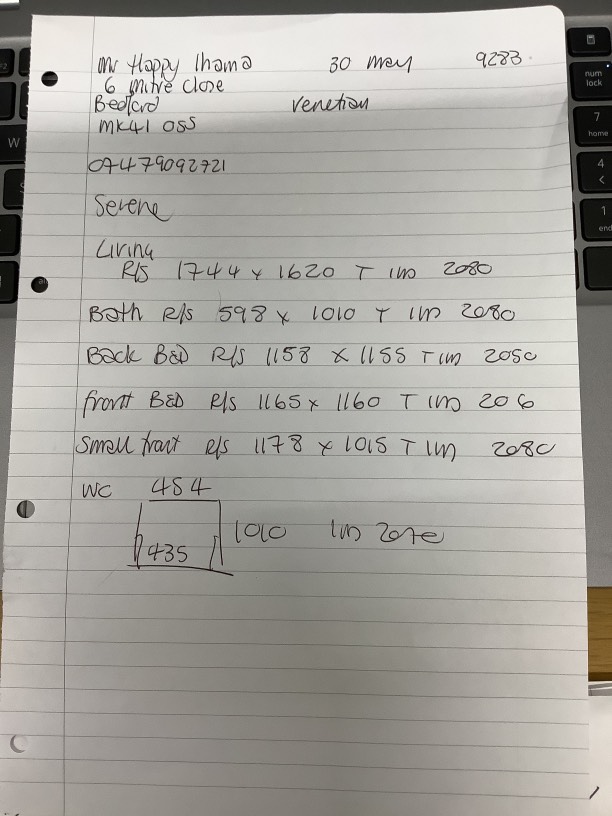 Mr Happy Ihama 30 May 9283
6 Mitre Close
Bedford Venetian
MK41 0SS
07479092721
Serene
Living
R/S 1744 x 1620 T 1m 2080
Bath R/s 598 x 1010 T 1m 2080
Back BED R/s 1158 x 1155 T 1m 2050
front BED R/s 1165 x 1160 T 1m 206
Small front R/s 1178 x 1015 T 1m 2080
WC 454
1010 1m
435